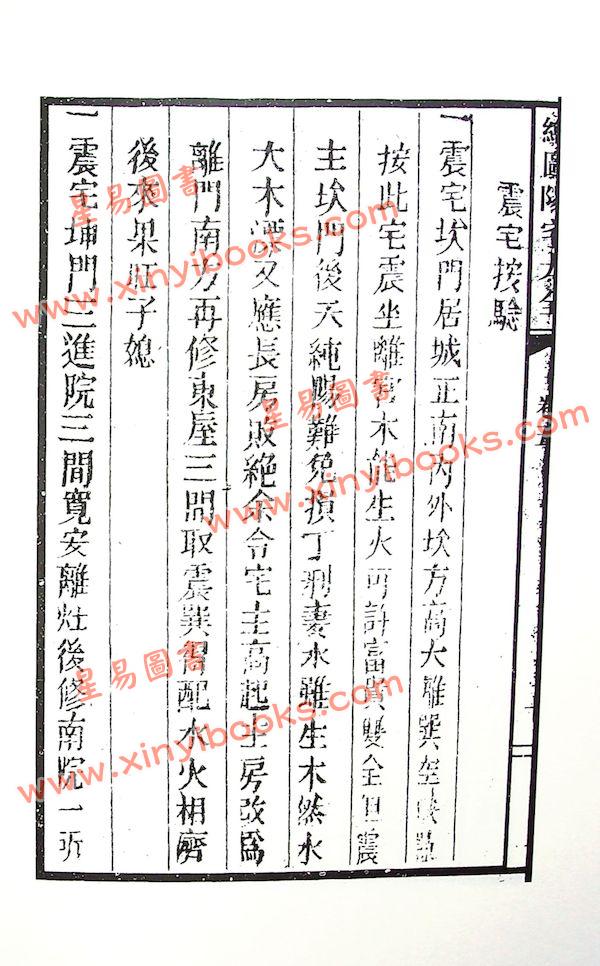 陽宅大全
卷
震宅按驗
一震宅坎門居城正南內外坎方高大離巽空
按此宅震坐離宮木能生火可許富貴雙全但震
主坎門後天純陽難免損丁剋妻水雖生木然水
大木漂又應長房敗絕余令宅主高起主房改為
離門南方再修東屋三間取震巽智配水火相濟
後來果旺子媳
一震宅坤門三進院三間寬安離灶後修南院一所
星易圖書
www.xinyibooks.com
星易圖書
www.xinyibooks.com
星易圖書
www.xinyibooks.com